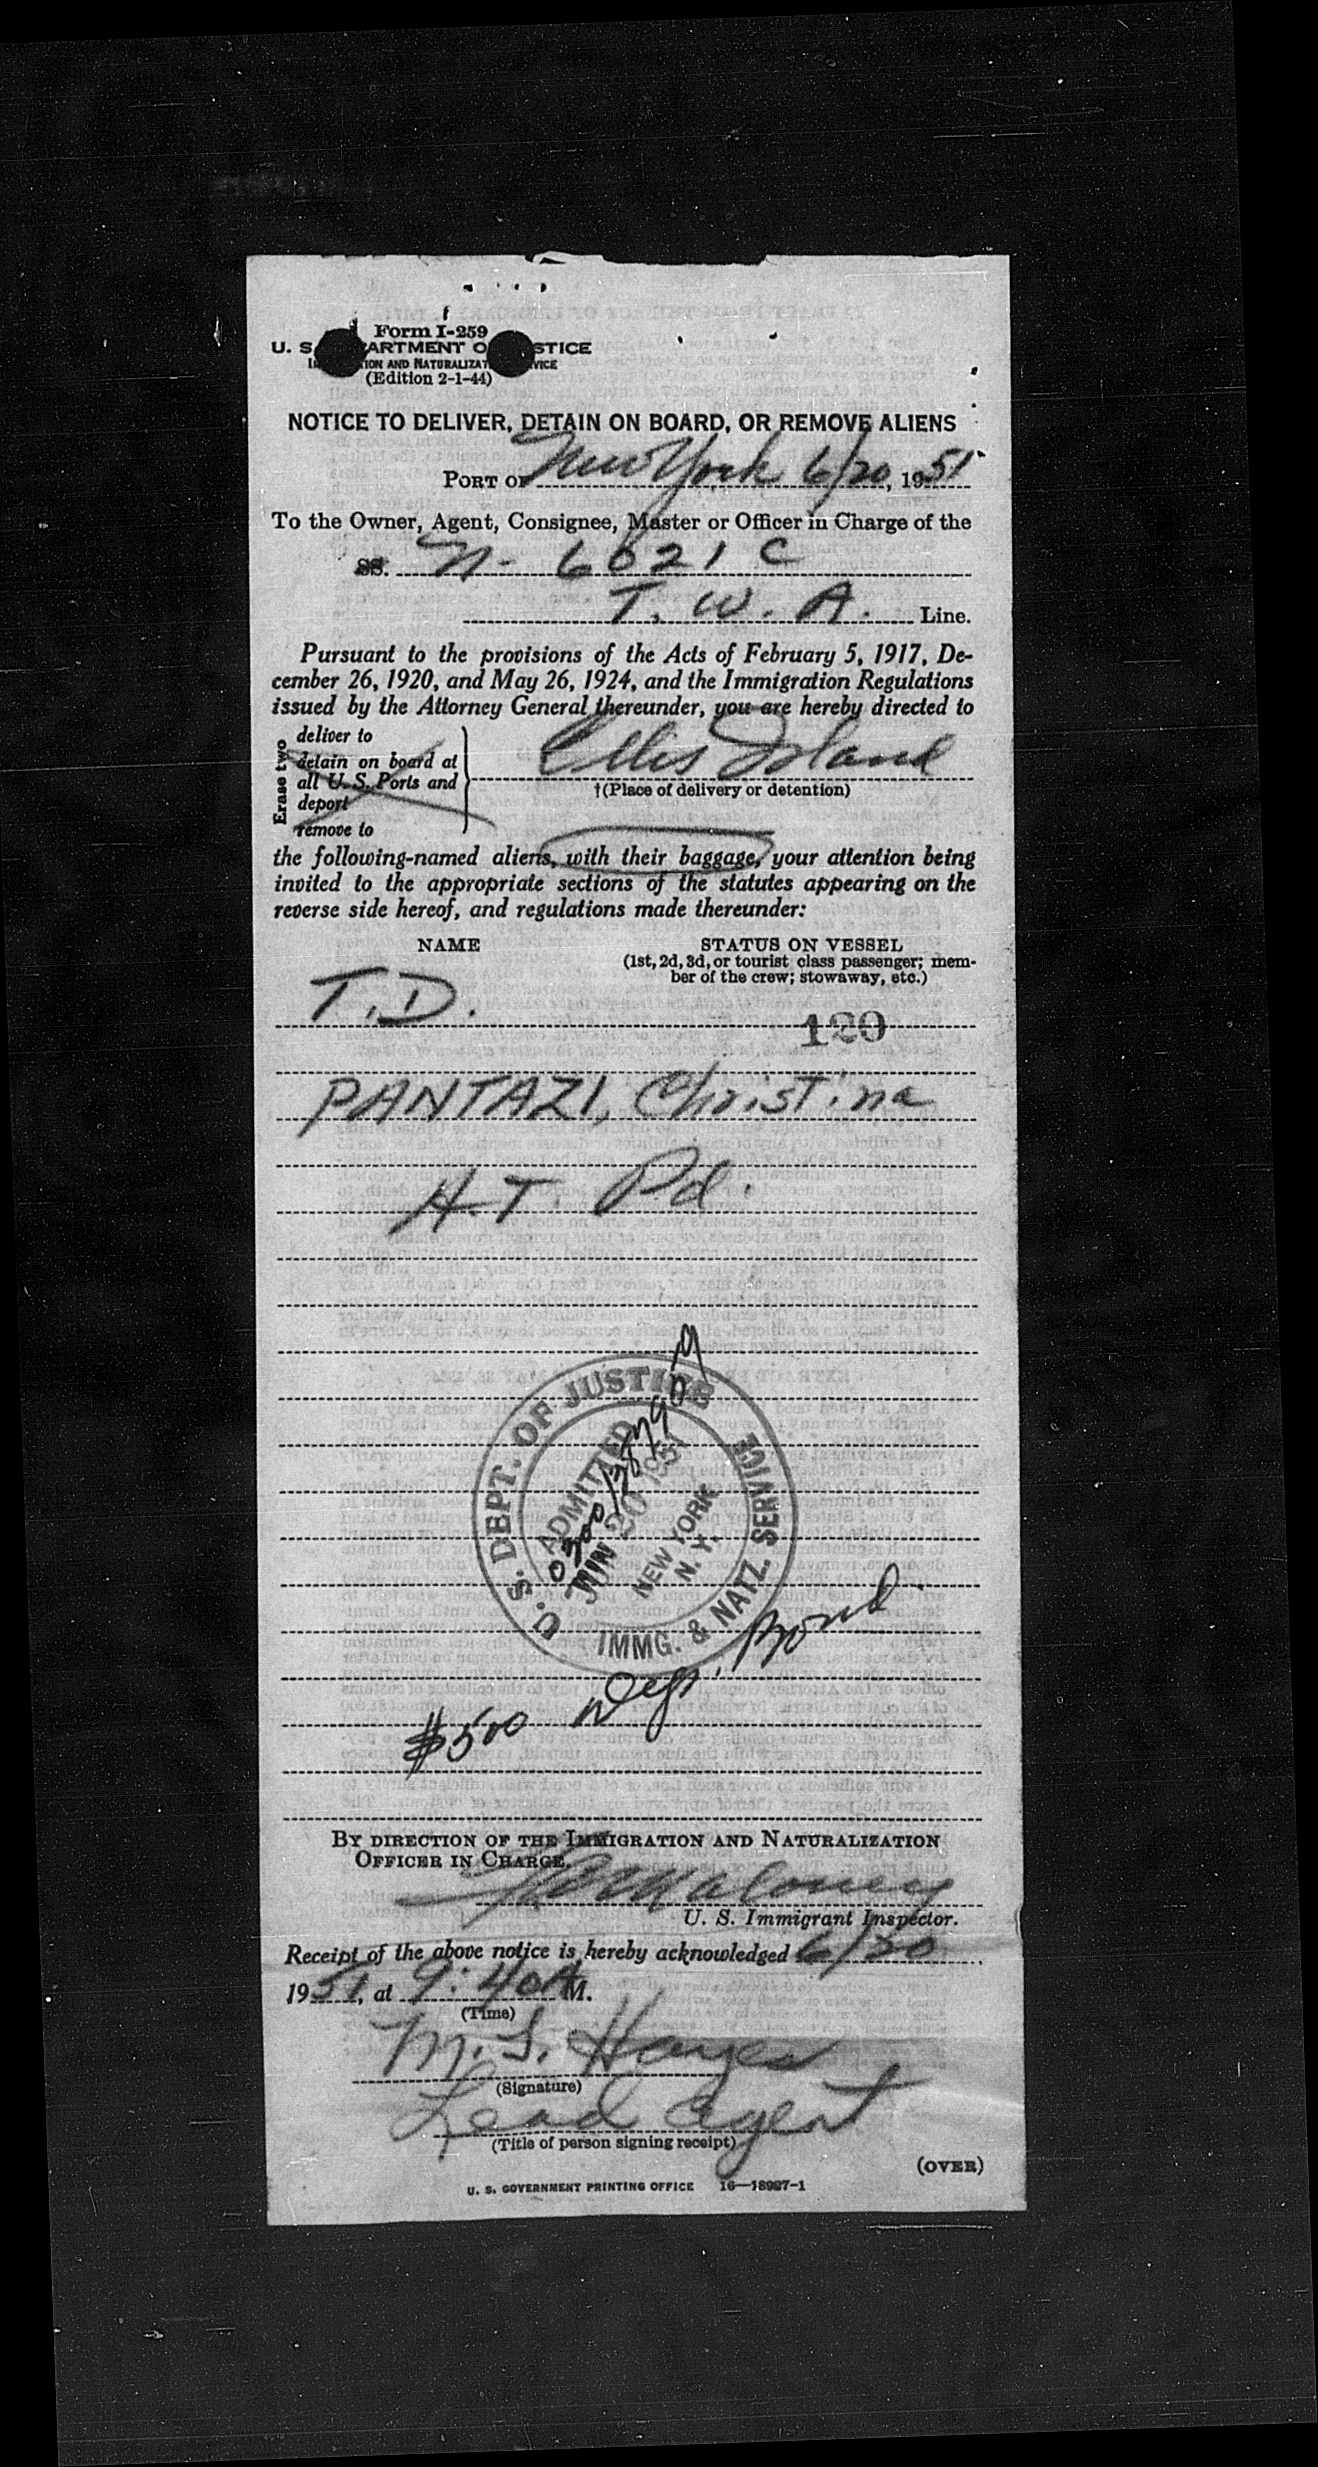 Form I-259
U. S. DEPARTMENT OF JUSTICE
IMMIGRATION AND NATURALIZATION SERVICE
(Edition 2-1-44)
NOTICE TO DELIVER, DETAIN ON BOARD, OR REMOVE ALIENS
PORT OF New York 6/20, 1951
To the Owner, Agent, Consignee, Master or Officer in Charge of the
SS. N- 6021 C
T. W. A. Line.
Pursuant to the provisions of the Acts of February 5, 1917, De-
cember 26, 1920, and May 26, 1924, and the Immigration Regulations
issued by the Attorney General thereunder, you are hereby directed to
Erase two
deliver to
detain on board at
all U. S. Ports and
deport
remove to
Ellis Island
†(Place of delivery or detention)
the following-named aliens, with their baggage, your attention being
invited to the appropriate sections of the statutes appearing on the
reverse side hereof, and regulations made thereunder:
NAME STATUS ON VESSEL
(1st, 2d, 3d, or tourist class passenger; mem-
ber of the crew; stowaway, etc.)
T.D.
120
PANTAZI, Christina
H.T. Pd.
U. S. DEPT. OF JUSTICE
ADMITTED
JUN 20 1951
NEW YORK
N. Y.
IMMG. & NATZ. SERVICE
$500 Dept. Bond
BY DIRECTION OF THE IMMIGRATION AND NATURALIZATION
OFFICER IN CHARGE.
Maloney
U. S. Immigrant Inspector.
Receipt of the above notice is hereby acknowledged 6/20
1951, at 9:40 A M.
(Time)
M. S. Hayes
(Signature)
Lead Agent
(Title of person signing receipt)
(OVER)
U. S. GOVERNMENT PRINTING OFFICE 16—18987-1